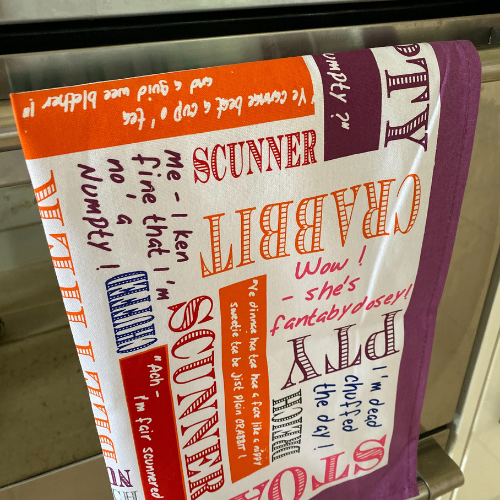 "Ye cannae beat a cup o' tea
and a guid wee blether!"
umpty?"
PTY
SCUNNER
CRABBIT
Me - I ken
fine that I'm
no' a
Numpty!
Wow!
- she's
fantabydosey!
"Ye dinnae hae tae hae a face like a nippy
sweetie tae be jist plain CRABBIT!
SCUNNER
"Ach -
I'm fair scunnered
PTY
I'm dead
chuffed
the day!
STO
NU